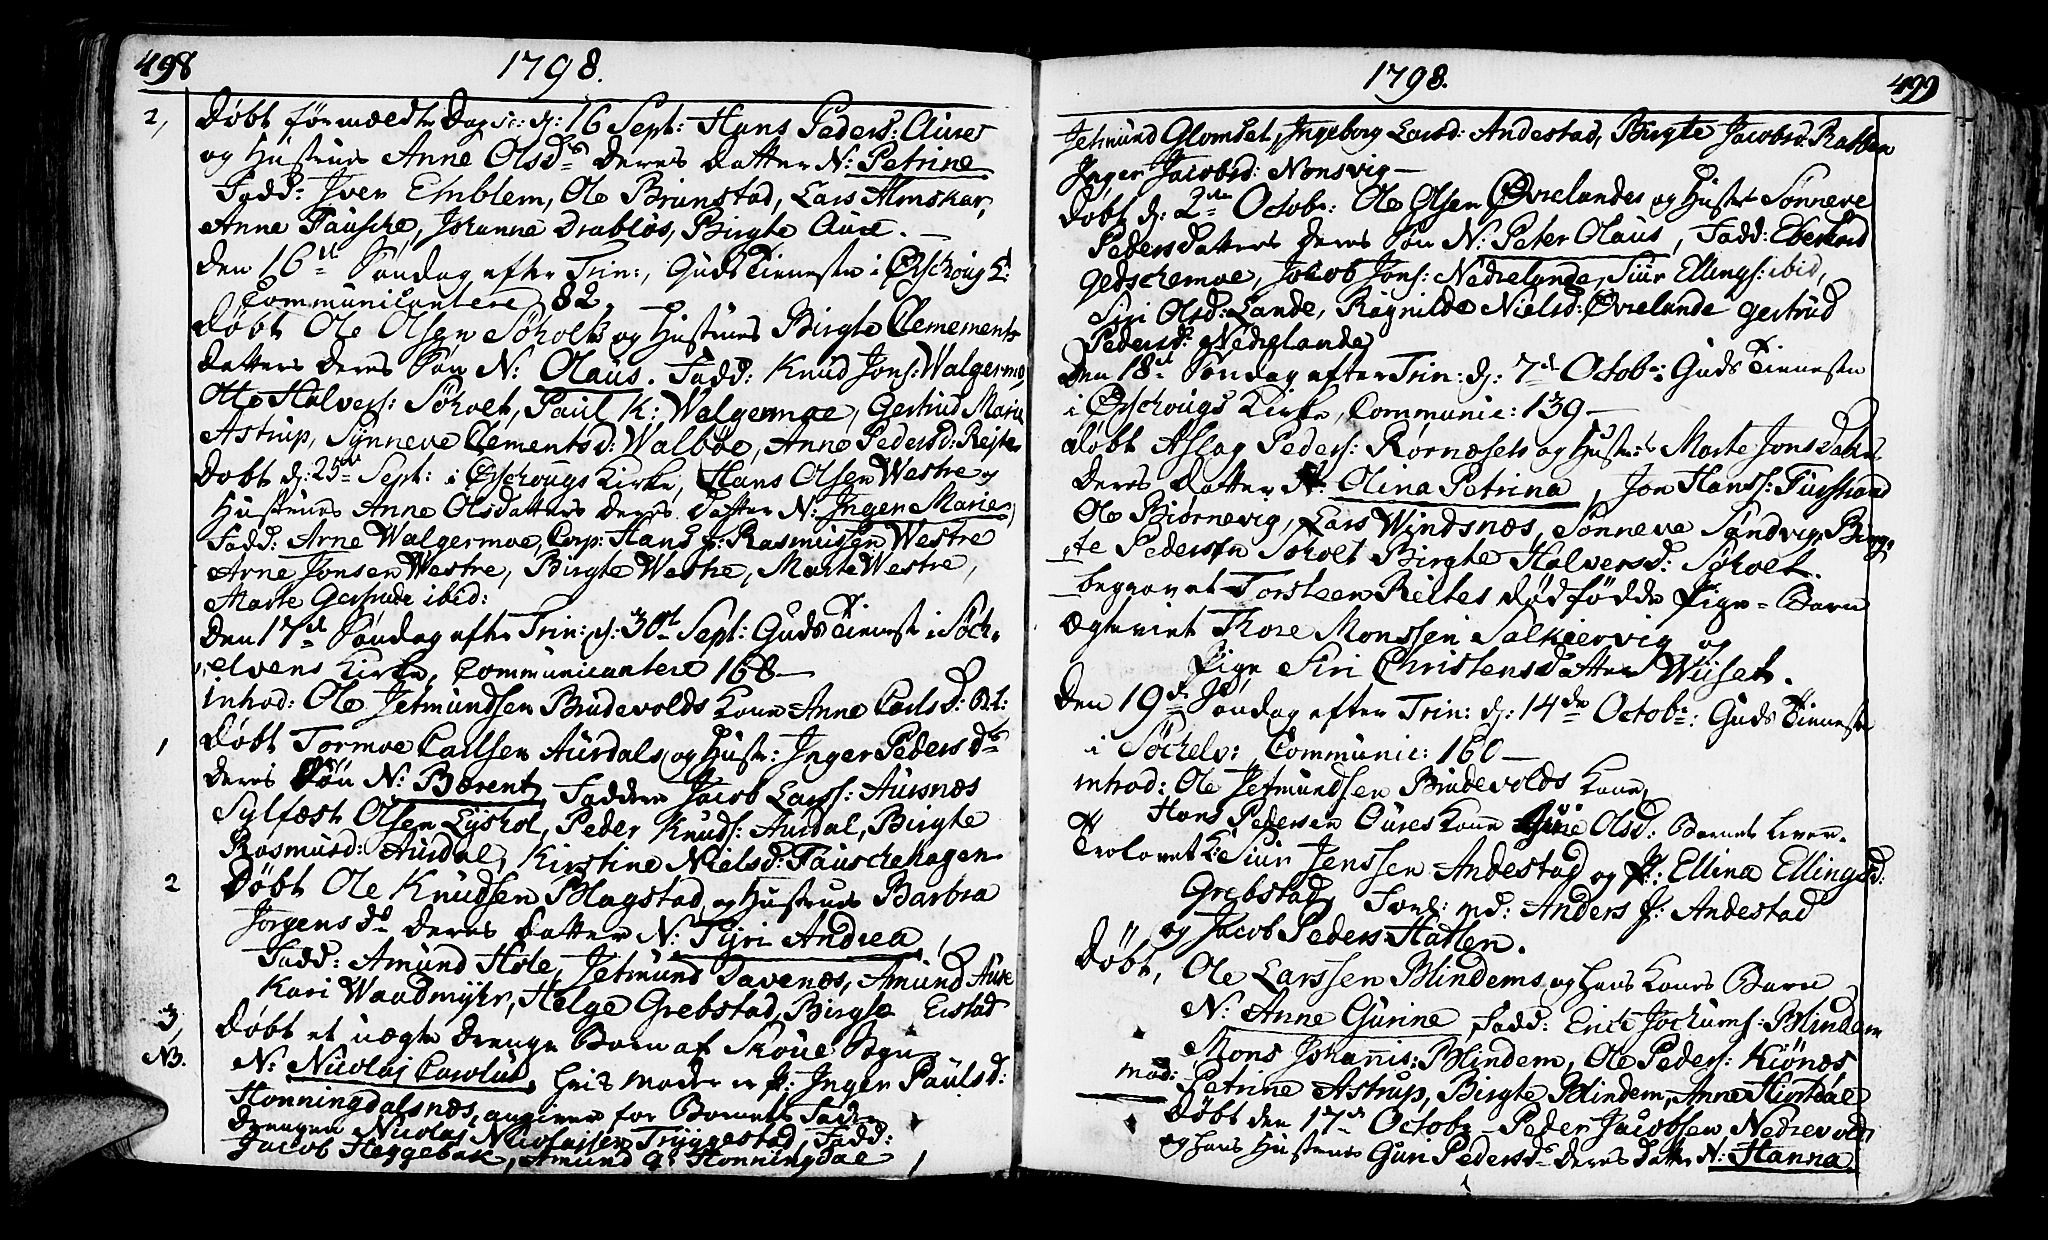 498
1798.
2, Døbt førmældte Dag d: 16 Sept: Hans Peders: Aures
og Hustrues Anne Olsd: deres Datter N: Petrine
Fadd: Iver Emblem, Ole Brunstad, Lars Almskar,
Anne Fausche, Johanne Drabløs, Birgte Aure. —
Den 16de Søndag efter Trin:, Guds Tieneste i Ørschoug K:
Communicantere 82. —
Døbt Ole Olsen Søholts og Hustrues Birgte Clements
datters deres Søn N: Olaus. Fadd: Knud Jons: Walgermo,
Otto Halvers: Søholt, Paul K: Walgermoe, Gertrud Marie
Astrup, Synneve Clementsd: Walbøe, Anne Pedersd: Reiten
Døbt d: 25de Sept: i Ørschougs Kirke, Hans Olsen Westre og
Hustrues Anne Olsdatters deres Datter N: Inger Marie,
Fadd: Arne Walgermoe, Corp: Hans Rasmusen Westre
Arne Jonsen Westre, Birgte Westre, Marte Westre,
Marte Gertrude ibid:
Den 17de Søndag efter Trin: d: 30te Sept: Guds Tieneste i Søch-
elvens Kirke, Communicantere 168 —
introd: Ole Jetmundsen Brudevolds Kone Anne Carlsd:
1 Døbt Tormoe Carlsen Aurdals og Hustr: Inger Pedersd:
deres Søn N: Bærent, Faddere Jacob Larss: Aursnæs
Sylfæst Olsen Lyshol, Peder Knuds: Aurdal, Birgte
Rasmusd: Aurdal, Kirstine Nielsd: Fauschehagen
2 Døbt Ole Knudsen Blagstad og Hustrues Barbra
Jørgensd: deres Datter N: Tyri Andrea,
Fadd: Amund Hole, Jetmund Davenæs, Amund Aure
Kari Waadmyhr, Helge Grebstad, Birgte Eistad
3, Døbt et uægte Drenge Barn af Skoue Sogn
NB. N: Nicolaj Carolus, hvis moder er P: Inger Paulsd:
Honningdalsnæs, angiven for Barnets Fader
Drengen Nicolas Nicolaisen Tryggestad, Fadd:
Jacob Heggebak, Amund Honningdal
1798.
499
Jetmund Glomset, Ingeborg Larsd: Andestad, Birgte Jacobsd: Ratten
Inger Jacobsd: Nonsvig —
Døbt d: 2den Octobr: Ole Olsen Øvrelandes og Hustr Sønneve
Pedersdatters deres Søn N: Peter Olaus, Fadd: Eberhard
Gedschemoe, Jacob Jons: Nedrelande, Siur Ellings: ibid,
Siri Olsd: Lande, Ragnilde Nielsd: Øvrelande Gertrud
Pedersd: Nedrelande
Den 18de Søndag efter Trin: d: 7de Octob: Guds Tieneste
i Ørschougs Kirke, Communic: 139 —
Døbt Aslag Peders: Rørnæsets og Hustr: Marte Jonsdatters
deres Datter N: Olina Petrina, Jon Hanss: Turstrand
Ole Biørnevig, Lars Windsnæs, Sønneve Søndvig, Birg-
te Pedersen Søholt Birgte Halversd: Søholt.
begravet Torsteen Reites dødfødde Pige-Barn
Ægteviet Thore Monssen Salkiervig og
Pige Siri Christensdatter Wiiset.
Den 19de Søndag efter Trin: d: 14de Octob: Guds Tieneste
i Søchelv: Communic: 160 —
introd: Ole Jetmundsen Brudevolds Kone,
Hans Pedersen Oures Kone Anne Olsd: Barnet lever.
Trolovet K: Siur Jenssen Andestad og P: Ellina Ellingsd:
Grebstad, Forl: md: Anders P: Andestad
og Jacob Peders: Hatlen.
Døbt, Ole Larssen Blindems og hans Kones Barn
N: Anne Gurine, Fadd: Erich Jochums: Blindem
Mons Johanis: Blindem, Ole Peders: Kiønæs,
mad: Petrine Astrup, Birgte Blindem, Anne Hiortdal
Døbt den 17de Octobr Peder Jacobsen Nedrevold
og hans Hustrues Guri Pedersd: deres Datter N: Hanna